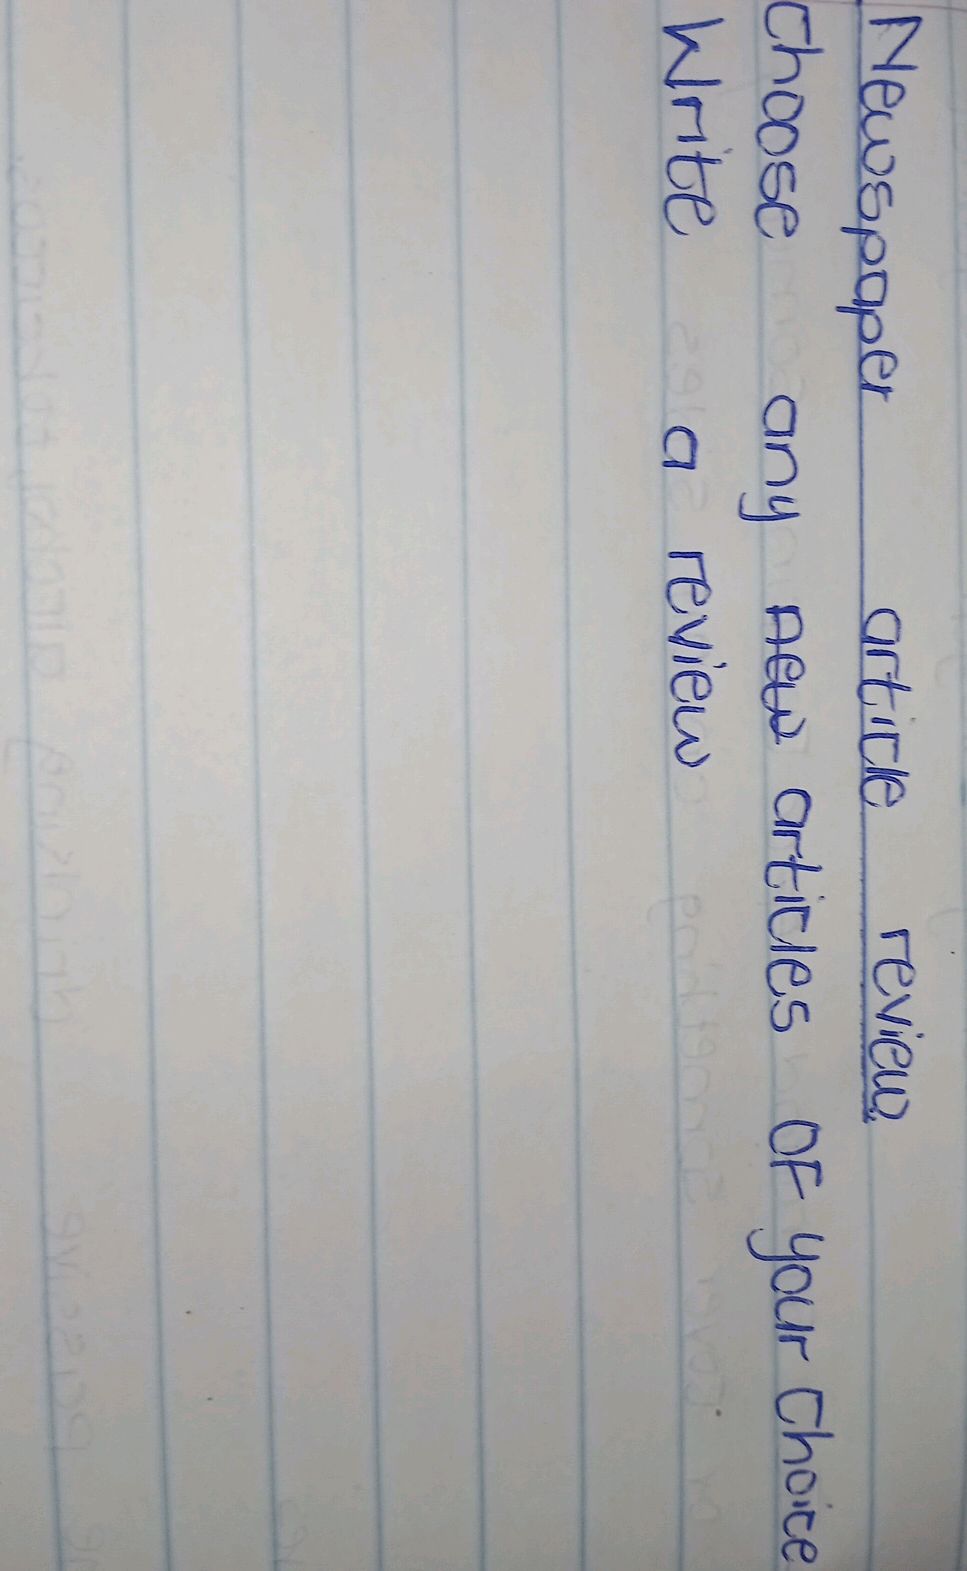 Newspaper article review
Choose any new articles OF your Choice
Write a review